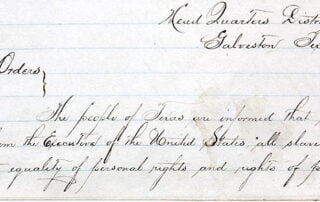 Head Quarters Distri
Galveston Te
Orders
The people of Texas are informed that
om the Executive of the United States, all slave
equality of personal rights and rights of p